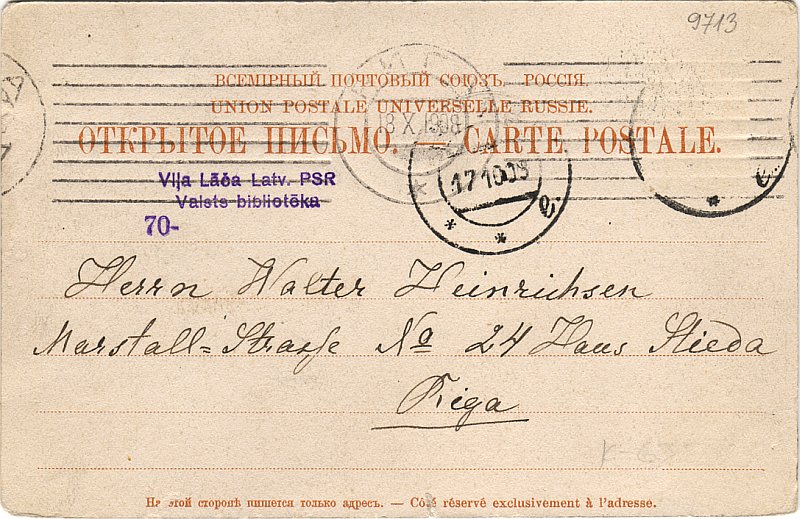 9713
ВСЕМІРНЫЙ ПОЧТОВЫЙ СОЮЗЪ. РОССІЯ.
UNION POSTALE UNIVERSELLE RUSSIE.
ОТКРЫТОЕ ПИСЬМО. — CARTE POSTALE.
18 X 1908
17 10 08
Viļa Lāča Latv. PSR
Valsts bibliotēka
70-
Herrn Walter Heinrichsen
Marstall=Strasse No 24 Haus Stieda
Riga
На этой сторонѣ пишется только адресъ. — Côté réservé exclusivement à l'adresse.